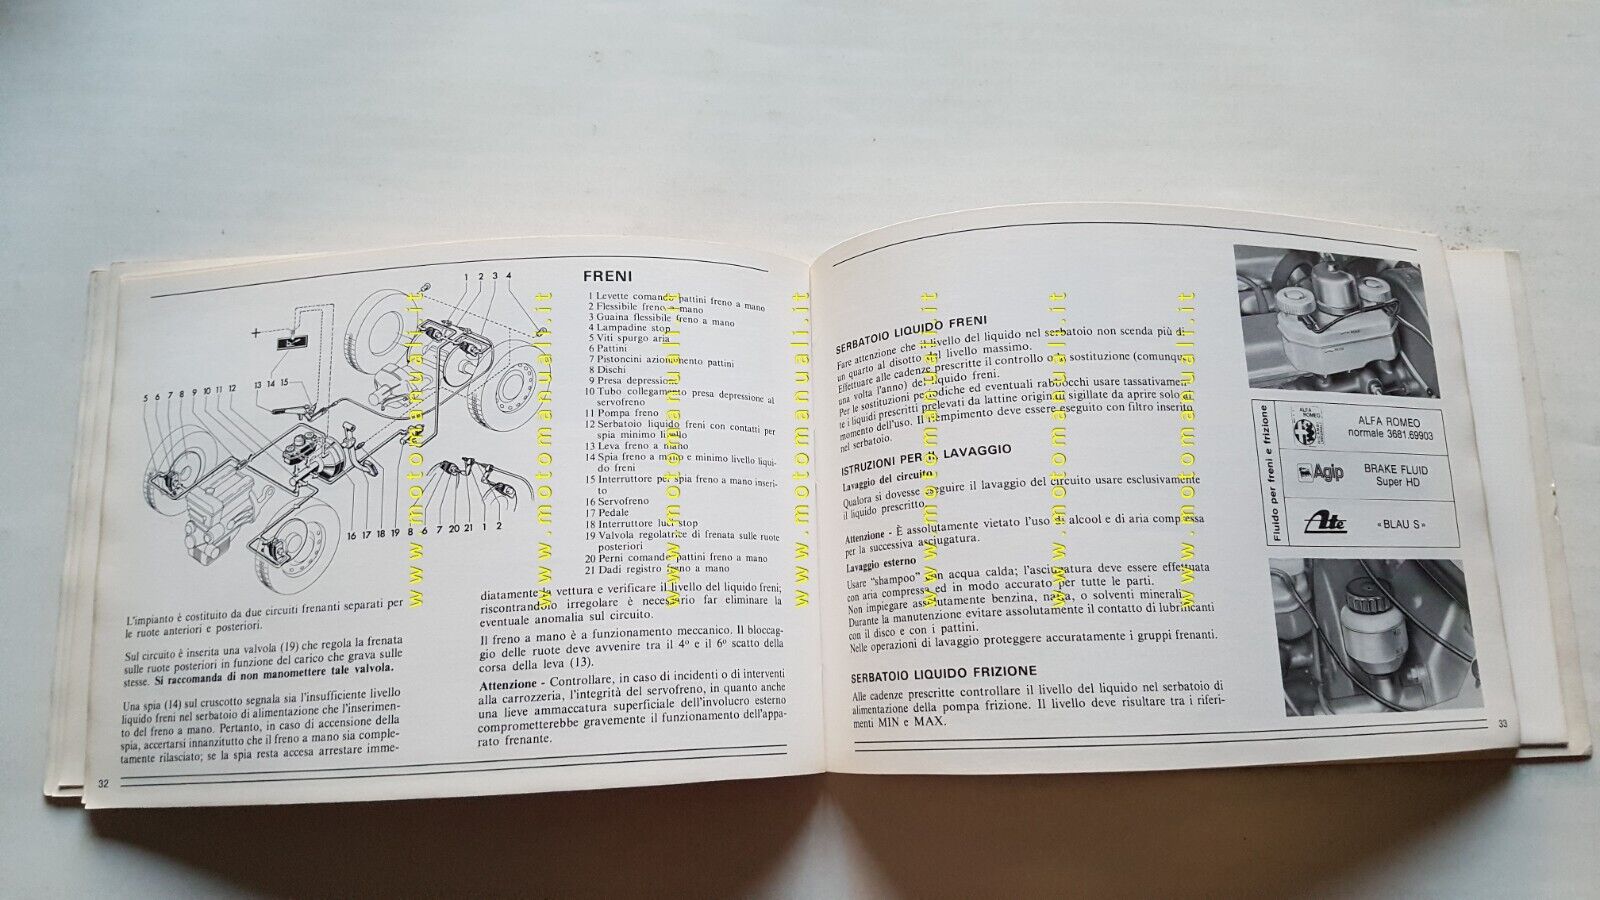 FRENI
1 2 3 4
5 6 7 8 9 10 11 12
13 14 15
16 17 18 19 8 6 7 20 21 1 2
1 Levette comando pattini freno a mano
2 Flessibile freno a mano
3 Guaina flessibile freno a mano
4 Lampadine stop
5 Viti spurgo aria
6 Pattini
7 Pistoncini azionamento pattini
8 Dischi
9 Presa depressione
10 Tubo collegamento presa depressione al
servofreno
11 Pompa freno
12 Serbatoio liquido freni con contatti per
spia minimo livello
13 Leva freno a mano
14 Spia freno a mano e minimo livello liqui-
do freni
15 Interruttore per spia freno a mano inseri-
to
16 Servofreno
17 Pedale
18 Interruttore luci stop
19 Valvola regolatrice di frenata sulle ruote
posteriori
20 Perni comando pattini freno a mano
21 Dadi registro freno a mano
L'impianto è costituito da due circuiti frenanti separati per
le ruote anteriori e posteriori.
Sul circuito è inserita una valvola (19) che regola la frenata
sulle ruote posteriori in funzione del carico che grava sulle
stesse. Si raccomanda di non manomettere tale valvola.
Una spia (14) sul cruscotto segnala sia l'insufficiente livello
liquido freni nel serbatoio di alimentazione che l'inserimen-
to del freno a mano. Pertanto, in caso di accensione della
spia, accertarsi innanzitutto che il freno a mano sia comple-
tamente rilasciato; se la spia resta accesa arrestare imme-
diatamente la vettura e verificare il livello del liquido freni;
riscontrandolo irregolare è necessario far eliminare la
eventuale anomalia sul circuito.
Il freno a mano è a funzionamento meccanico. Il bloccag-
gio delle ruote deve avvenire tra il 4º e il 6º scatto della
corsa della leva (13).
Attenzione - Controllare, in caso di incidenti o di interventi
alla carrozzeria, l'integrità del servofreno, in quanto anche
una lieve ammaccatura superficiale dell'involucro esterno
comprometterebbe gravemente il funzionamento dell'appa-
rato frenante.
32
SERBATOIO LIQUIDO FRENI
Fare attenzione che il livello del liquido nel serbatoio non scenda più di
un quarto al disotto del livello massimo.
Effettuare alle cadenze prescritte il controllo o la sostituzione (comunque
una volta l'anno) del liquido freni.
Per le sostituzioni periodiche ed eventuali rabbocchi usare tassativamen-
te i liquidi prescritti prelevati da lattine originali sigillate da aprire solo al
momento dell'uso. Il riempimento deve essere eseguito con filtro inserito
nel serbatoio.
ISTRUZIONI PER IL LAVAGGIO
Lavaggio del circuito
Qualora si dovesse eseguire il lavaggio del circuito usare esclusivamente
il liquido prescritto.
Attenzione - È assolutamente vietato l'uso di alcool e di aria compressa
per la successiva asciugatura.
Lavaggio esterno
Usare "shampoo" con acqua calda; l'asciugatura deve essere effettuata
con aria compressa ed in modo accurato per tutte le parti.
Non impiegare assolutamente benzina, nafta, o solventi minerali.
Durante la manutenzione evitare assolutamente il contatto di lubrificanti
con il disco e con i pattini.
Nelle operazioni di lavaggio proteggere accuratamente i gruppi frenanti.
SERBATOIO LIQUIDO FRIZIONE
Alle cadenze prescritte controllare il livello del liquido nel serbatoio di
alimentazione della pompa frizione. Il livello deve risultare tra i riferi-
menti MIN e MAX.
Fluido per freni e frizione
ALFA ROMEO
ALFA ROMEO
normale 3681.69903
Agip
BRAKE FLUID
Super HD
Ate
«BLAU S»
33
www.motomanuali.it
www.motomanuali.it
www.motomanuali.it
www.motomanuali.it
www.motomanuali.it
www.motomanuali.it
www.motomanuali.it